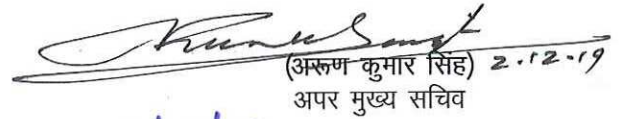 (अरूण कुमार सिंह) 2.12.19
अपर मुख्य सचिव